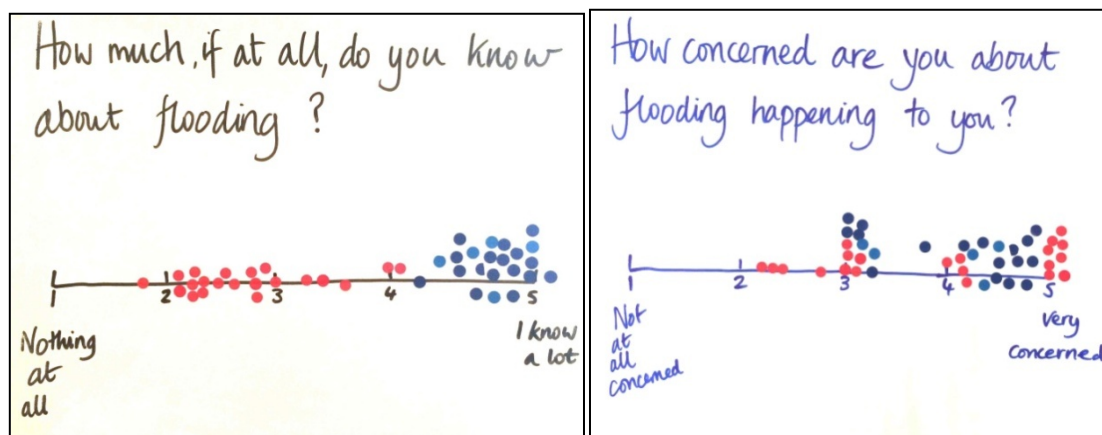 How much, if at all, do you know
about flooding ?
1 2 3 4 5
Nothing
at
all
I know
a lot
How concerned are you about
flooding happening to you?
1 2 3 4 5
Not
at
all
concerned
very
concerned